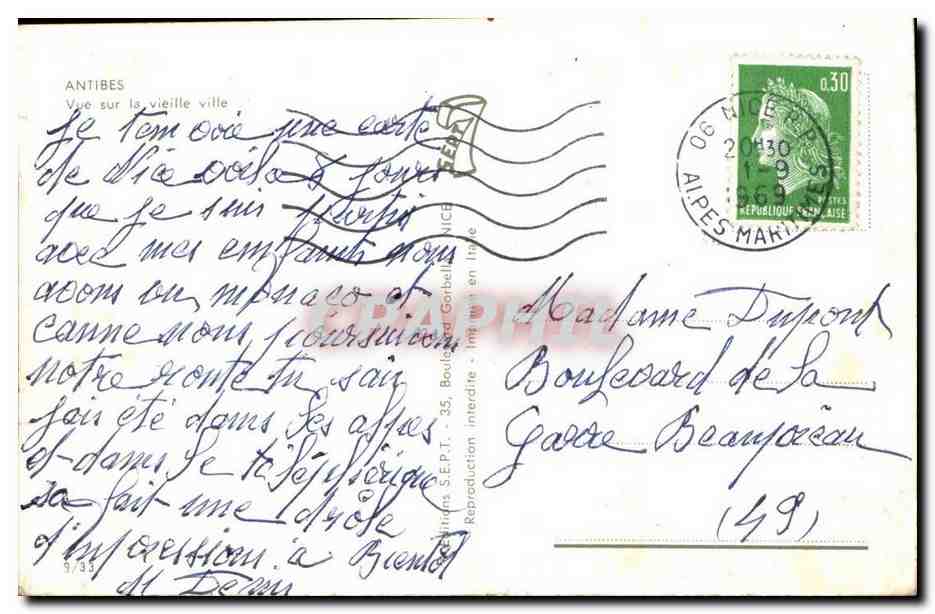 ANTIBES
Vue sur la vieille ville
Je ten voie une carte
de Nice voila 8 jours
que je suis partir
avec mes enfants nous
avons vu monaco et
canne nous poursuivons
notre route tu sais
jais été dans les alpes
et dans le téléphérique
sa fait une drôle
d'impression à Bientot
M Demy
9/33
SEPT
Editions S.E.P.T. - 35, Boulevard Gorbella, NICE
Reproduction interdite - Imprimé en Italie
0,30
POSTES
REPUBLIQUE FRANÇAISE
06 NICE R.P.
20H30
1-9
1969
ALPES MARITIMES
Madame Dupont
Boulevard de la
Garre Beaupréau
(49)
CPAPHIL